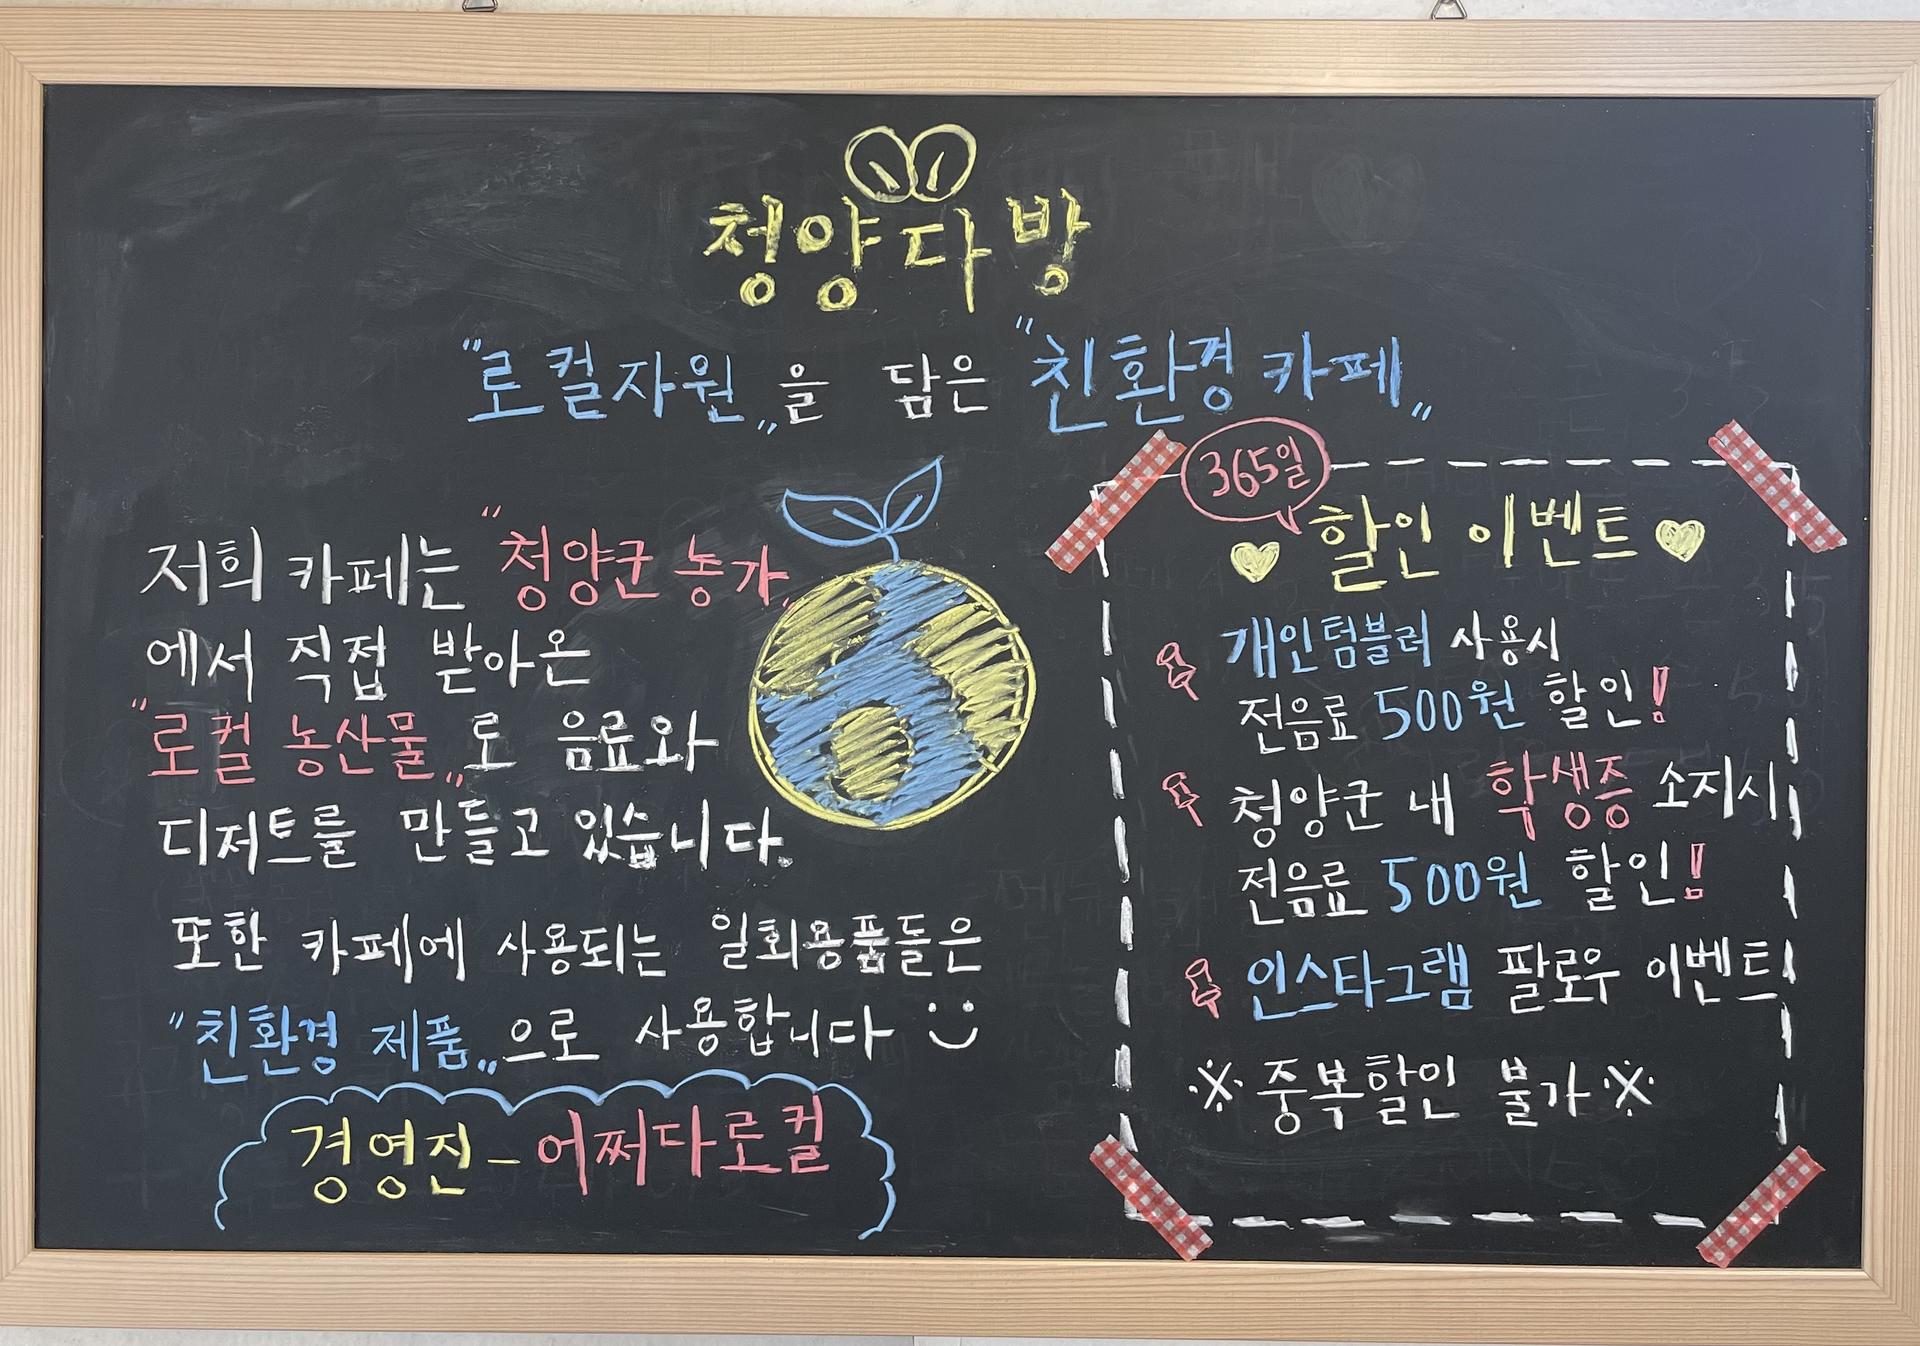 청양다방
"로컬자원„을 담은 "친환경 카페„
저희 카페는 "청양군 농가„
에서 직접 받아온
"로컬 농산물„로 음료와
디저트를 만들고 있습니다.
또한 카페에 사용되는 일회용품들은
"친환경 제품„으로 사용합니다
경영진-어쩌다로컬
365일
할인 이벤트
개인텀블러 사용시
전음료 500원 할인!
청양군 내 학생증 소지시
전음료 500원 할인!
인스타그램 팔로우 이벤트
※중복할인 불가※